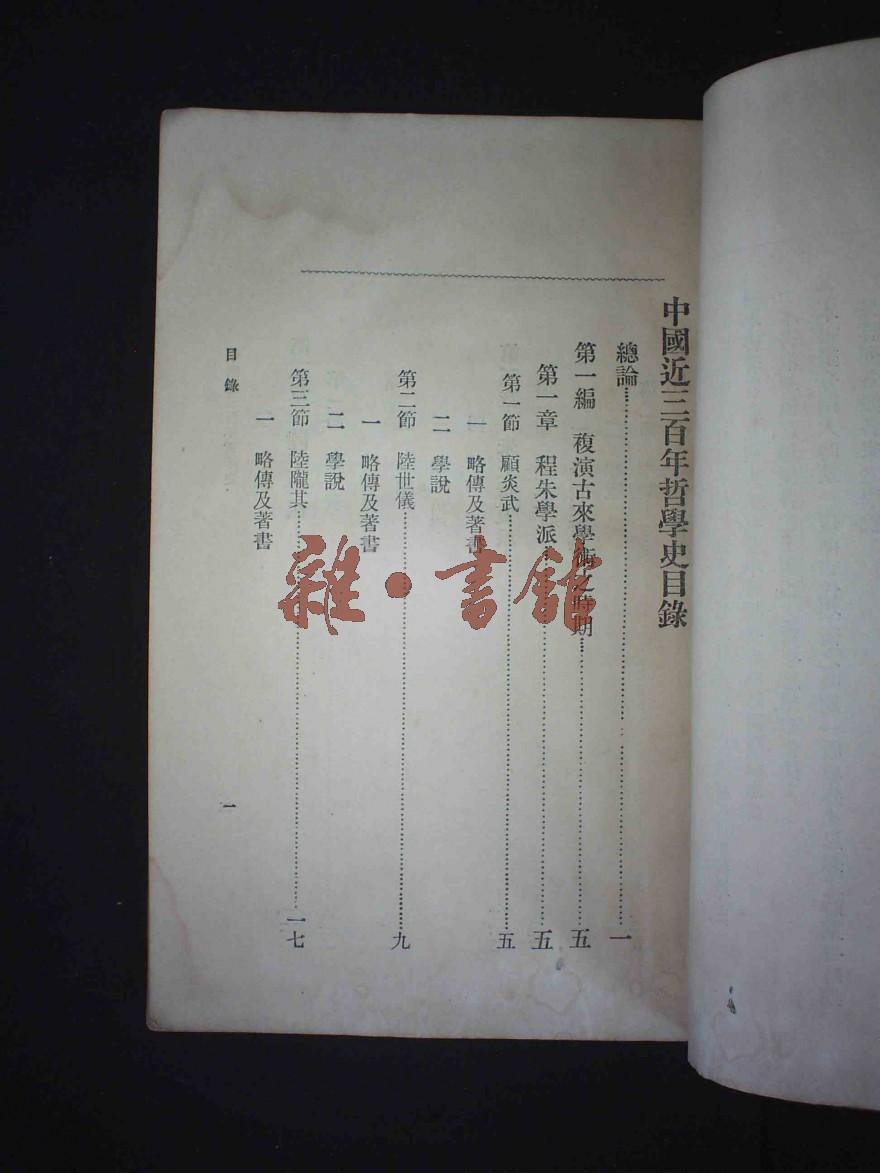 中國近三百年哲學史目錄
總論……一
第一編　複演古來學術之時期……五
第一章　程朱學派……五
第一節　顧炎武……五
一　略傳及著書
二　學說
第二節　陸世儀……九
一　略傳及著書
二　學說
第三節　陸隴其……一七
一　略傳及著書
目錄
一
雜·書館